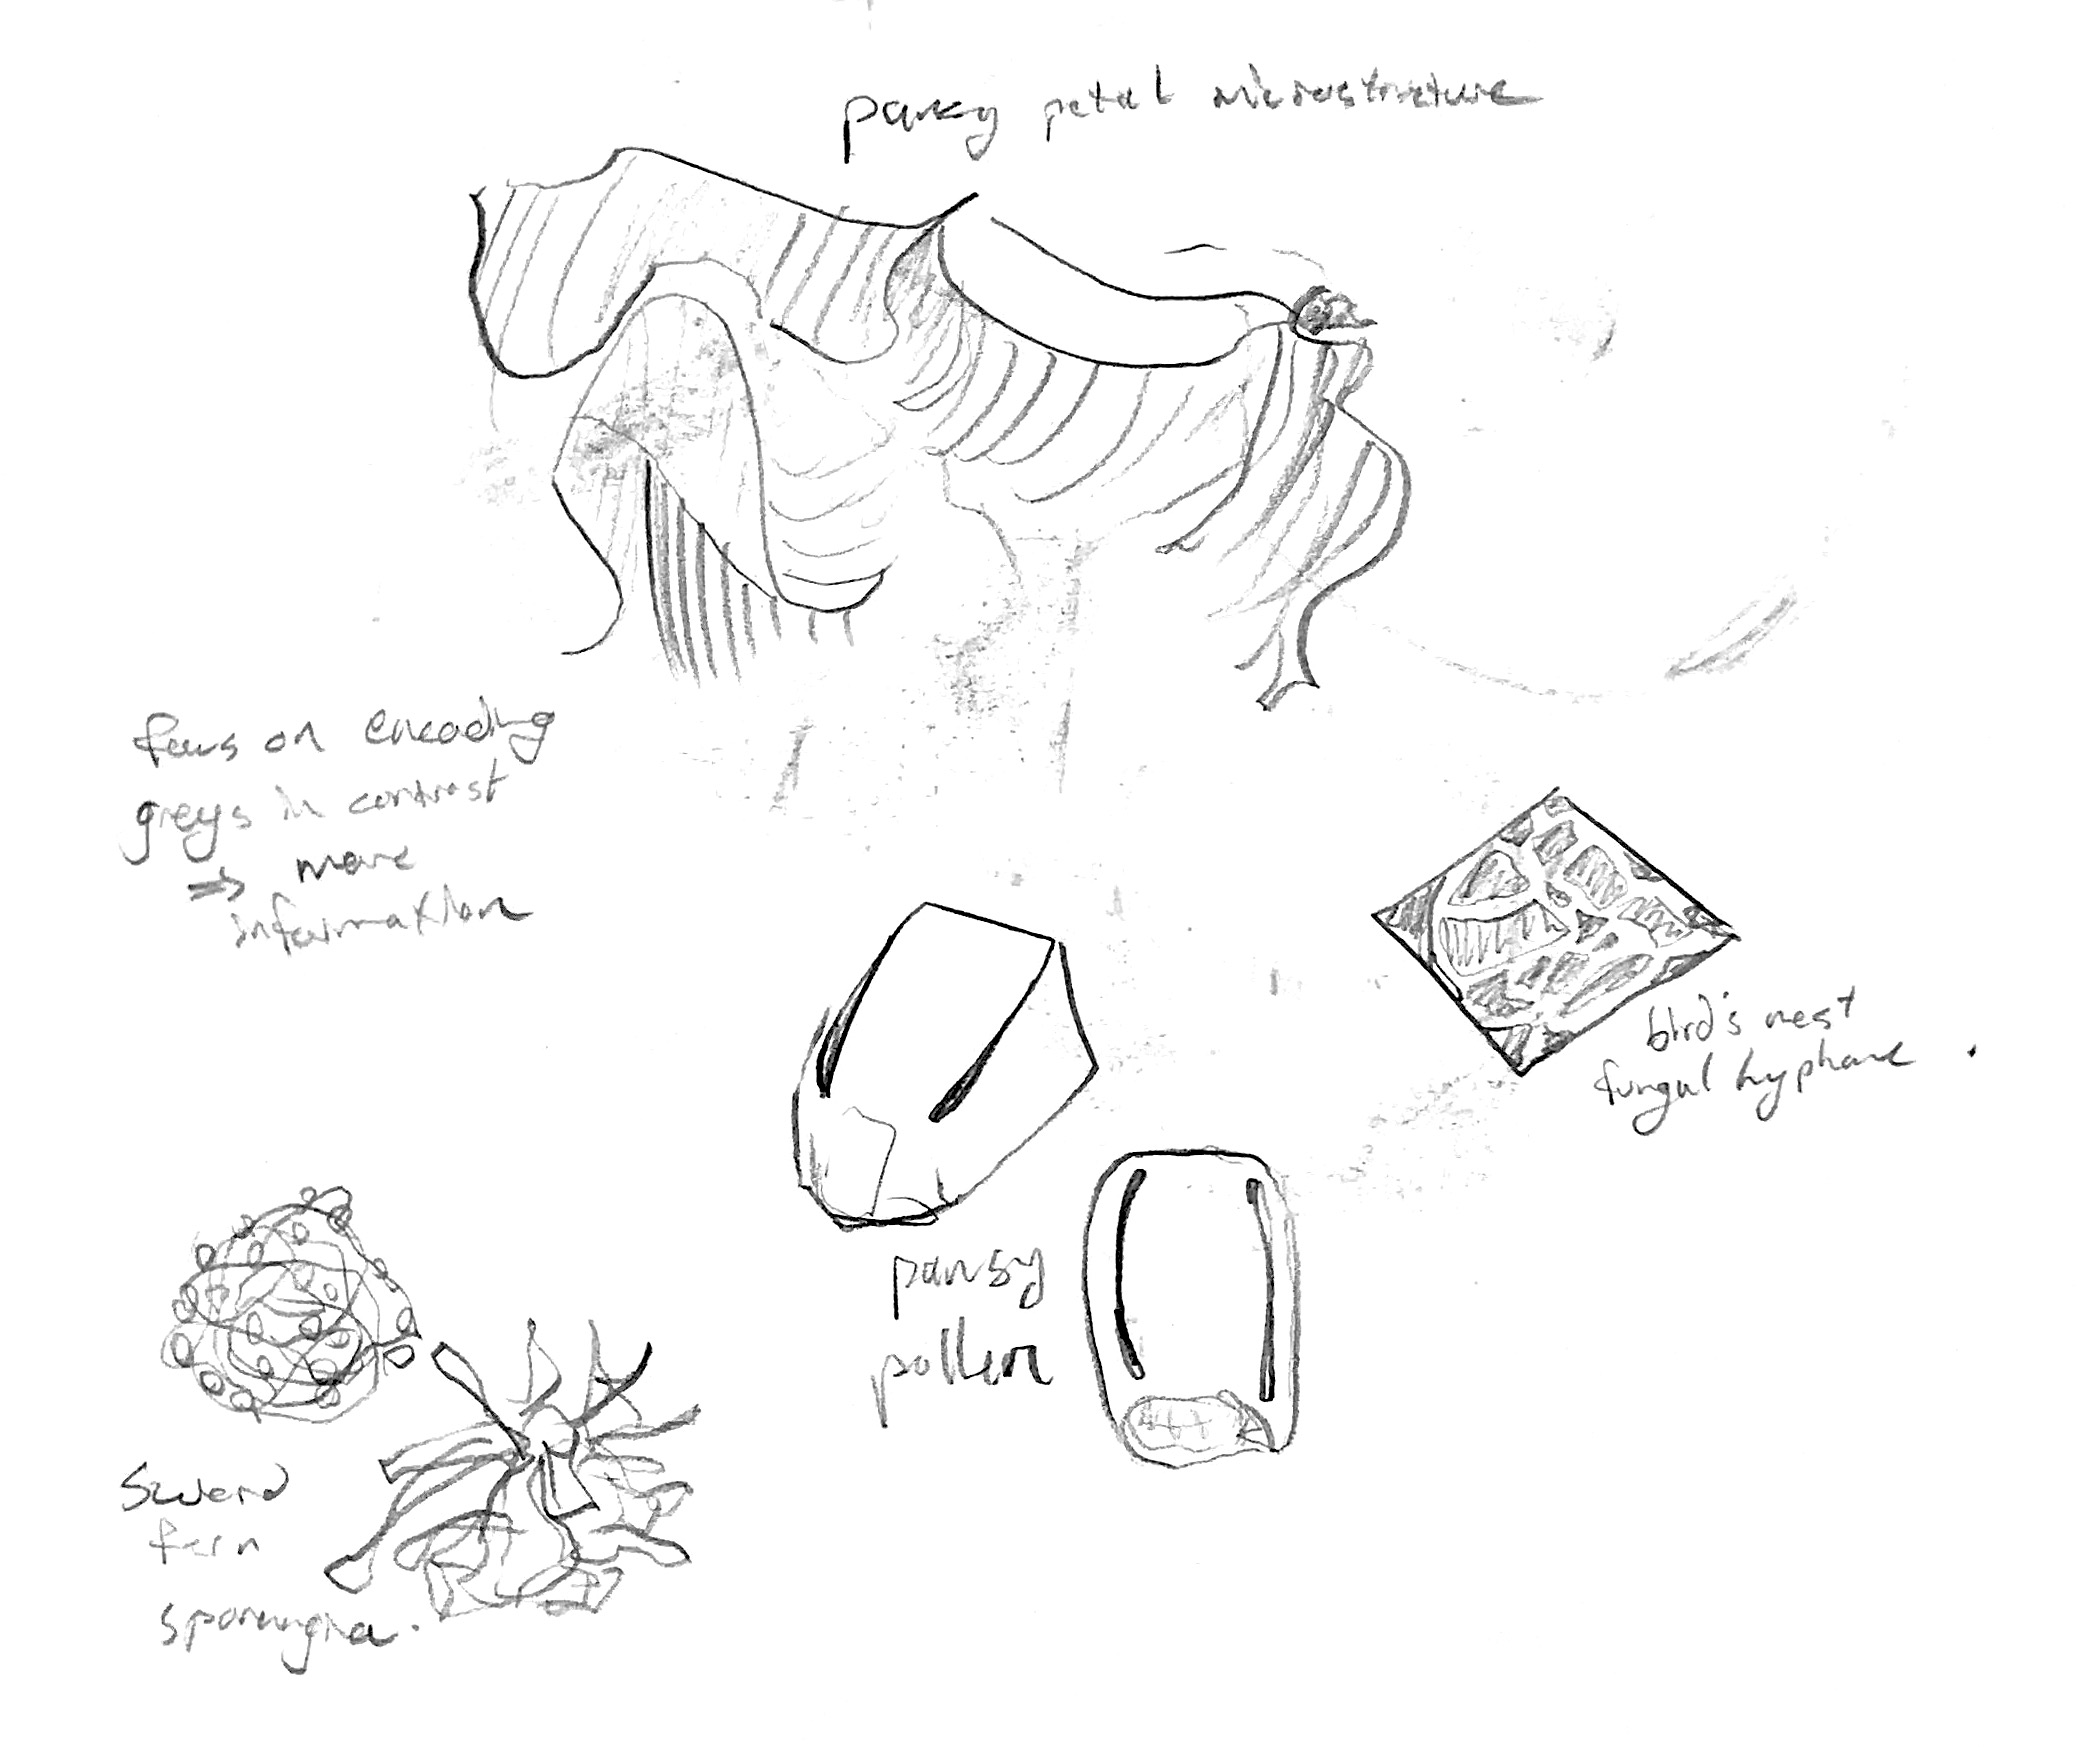 pansy petal microstructure
focus on encoding
greys in contrast
⇒ more
information
bird's nest
fungal hyphae.
pansy
pollen
Sword
fern
sporangia.